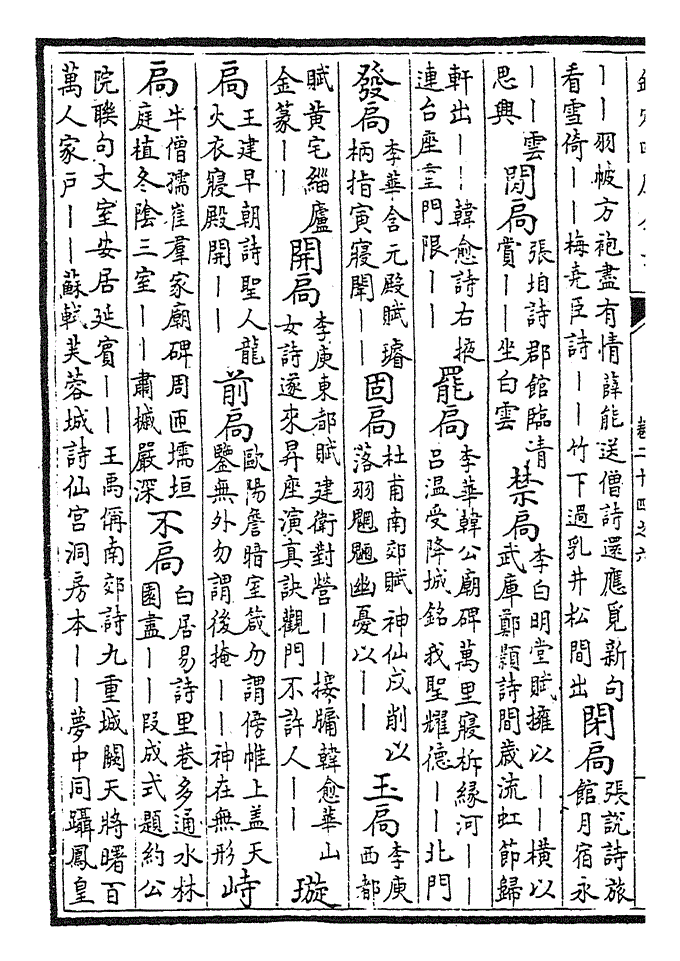 卷二十四之六
——羽帔方袍盡有情薛能送僧詩還應覓新句
看雪倚——梅堯臣詩——竹下過乳井松間出
閉扃
張說詩旅
館月宿永
——雲
思興
閒扃
張垍詩郡館臨清
賞——坐白雲
禁扃
李白明堂賦擁以——橫以
武庫鄭顥詩間歲流虹節歸
軒出——韓愈詩右掖
連台座重門限——
罷扃
李華韓公廟碑萬里寢柝緣河——
呂溫受降城銘我聖耀德——北門
發扃
李華含元殿賦璿
柄指寅寢闈——
固扃
杜甫南郊賦神仙戍削以
落羽魍魎幽憂以——
玉扃
李庾
西都
賦黃宅緇廬
金篆——
開扃
李庾東都賦建衛對營——接牖韓愈華山
女詩遂來昇座演真訣觀門不許人——
璇
扃
王建早朝詩聖人龍
火衣寢殿開——
前扃
歐陽詹暗室箴勿謂傍帷上蓋天
鑒無外勿謂後掩——神在無形
峙
扃
牛僧孺崔羣家廟碑周匝壖垣
庭植冬陰三室——肅槭嚴深
不扃
白居易詩里巷多通水林
園盡——段成式題約公
院聯句丈室安居延賓——王禹偁南郊詩九重城闕天將曙百
萬人家戶——蘇軾芙蓉城詩仙宮洞房本——夢中同躡鳳皇